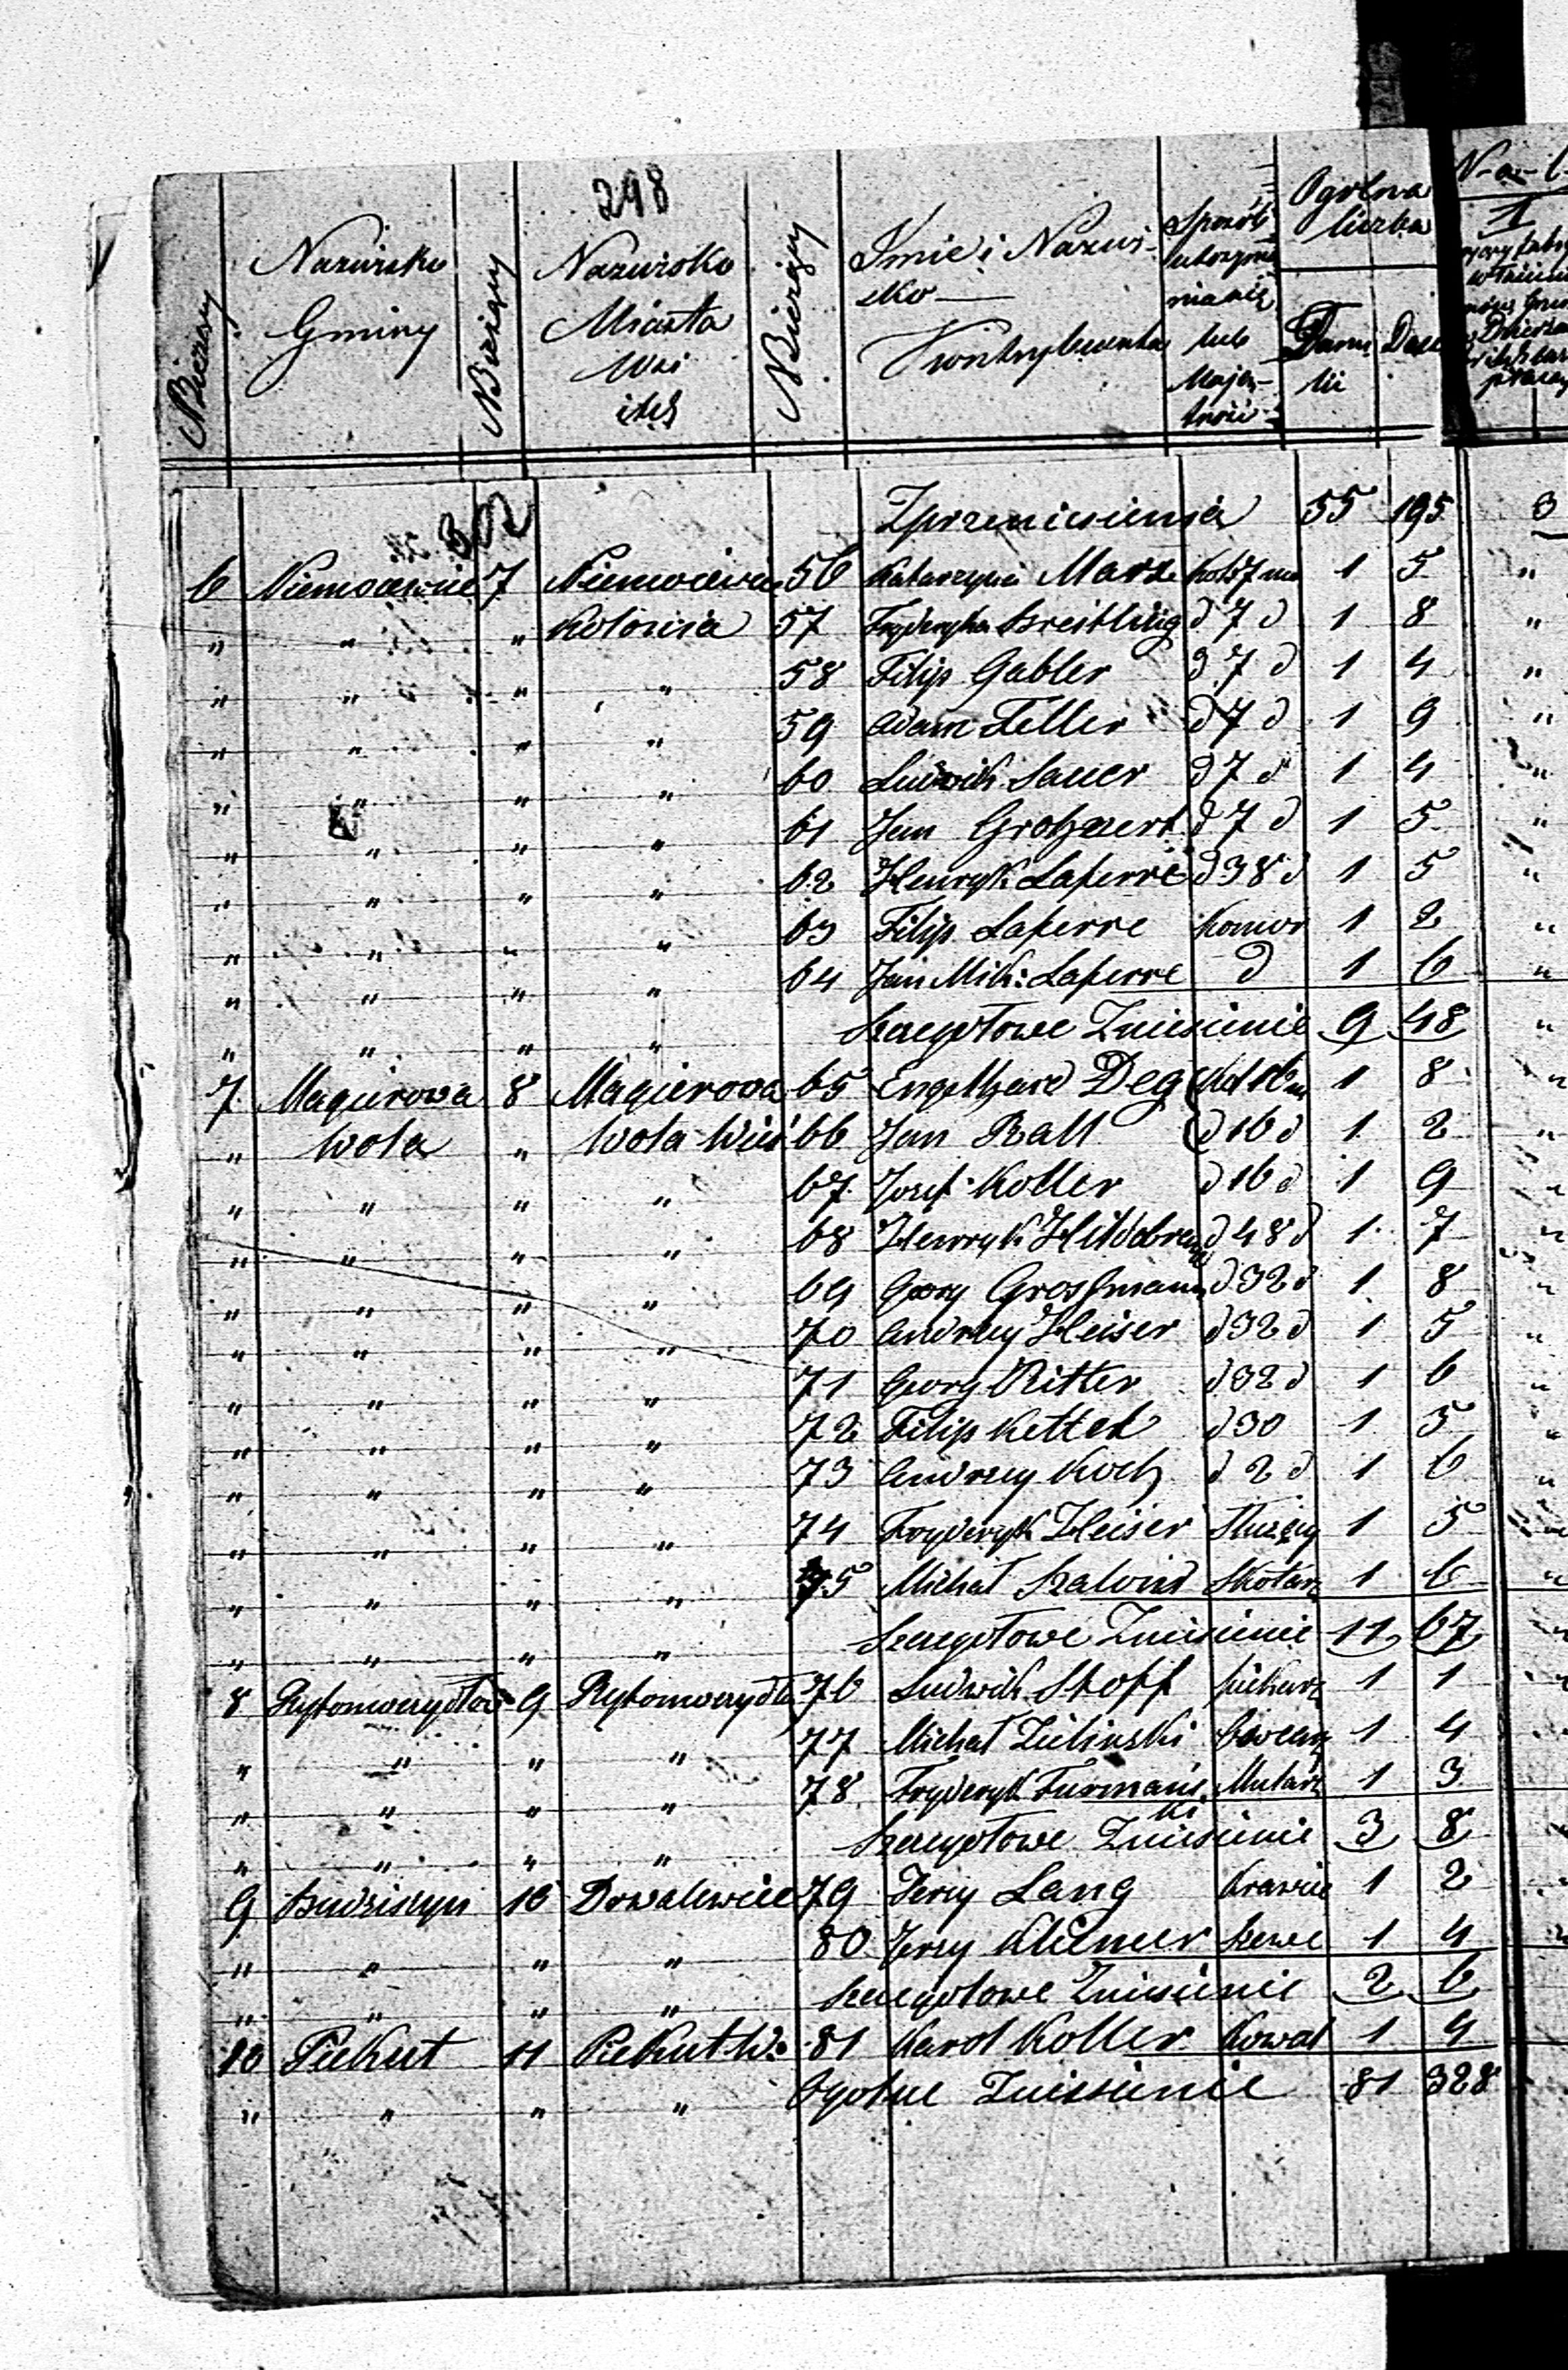 298
N Bieżący
Nazwisko Gminy
N Bieżący
Nazwisko Miasta Wsi itd
N Bieżący
Imie i Nazwisko Kontrybuenta
Sposób utrzymania się lub Majętności
Ogólna liczba
Familii
Dusz
N-a-
1
302
Zprzeniesienia 55 195 3
6 Niemoiewice 7 Niemoiewice 56 Katarzyna Marx Kol 7 mo 1 5 "
" " " Kolonia 57 Fryderyka Breitling d 7 d 1 8 "
" " " " 58 Filip Gabler d 7 d 1 4 "
" " " " 59 Adam Feller d 7 d 1 9 "
" " " " 60 Ludwik Sauer d 7 d 1 4 "
" " " " 61 Jan d 7 d 1 5 "
" " " " 62 Henryk Laferre d 38 d 1 5 "
" " " " 63 Filip Laferre Komor 1 2 "
" " " " 64 Jan Mik: Laferre d 1 6 "
" " " " Szczegułowe Zniesienie 9 48 "
7 Magierowa 8 Magierowa 65 Engelhard Deg Kol 16 m 1 8 "
" Wola " Wola Wieś 66 Jan Rall d 16 d 1 2 "
" " " " 67 Josef Koller d 16 d 1 9 "
" " " " 68 Henryk Hildebrand d 48 d 1 7 "
" " " " 69 Georg Grossmann d 32 d 1 8 "
" " " " 70 Andrzey Heiser d 32 d 1 5 "
" " " " 71 Georg Ritter d 32 d 1 6 "
" " " " 72 Filip Kettel d 30 1 5 "
" " " " 73 Andrzey Koch d 2 d 1 6 "
" " " " 74 Fryderyk Heiser Służący 1 5 "
" " " " 75 Michał Skotarz 1 6 "
" " " " Szczegułowe Zniesienie 11 67
8 9 76 Ludwik Stoff 1 1
" " " " 77 Michał Zielinski Owczarz 1 4
" " " " 78 Fryderyk Furmański Mularz 1 3
" " " " Szczegułowe Zniesienie 3 8
9 Budziszyn 10 79 Jerzy Lang Krawiec 1 2
" " " " 80 Jerzy Klemer Szewc 1 4
" " " " Szczegułowe Zniesienie 2 6
10 Piekut 11 Piekut W: 81 Karol Koller Kowal 1 4
" " " " Ogólne Zniesienie 81 328